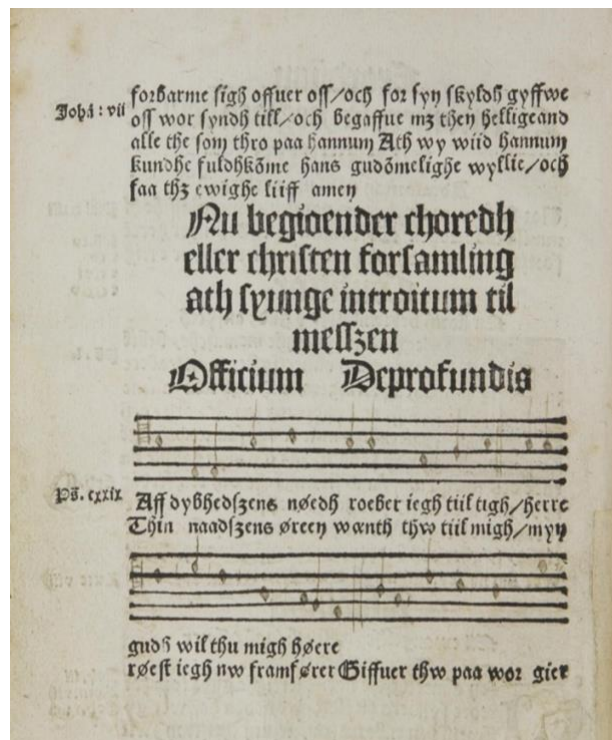 forbarme sigh offuer oss/och for syn skyldh gyffwe
Johā: vii
oss wor syndh till/och begaffue mꝫ then helligeand
alle the som thro paa hannum Ath wy wiid hannum
kundhe fuldhkōme hans gudōmelighe wyllie/och
faa thꝫ ewighe liiff amen
Nu begioender choredh
eller christen forsamling
ath syunge introitum til
messzen
Officium Deprofundis
Ps̄. cxxix
Aff dybhedszens nøedh roeber iegh tiil tigh/herre
Thin naadszens øreen wænth thw tiil migh/myn
gudh wil thu migh høere
røest iegh nw framfører Giffuer thw paa wor gier